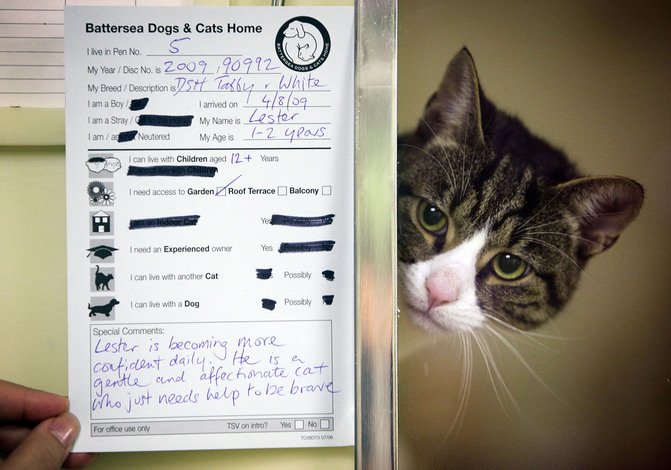 Battersea Dogs & Cats Home
BATTERSEA DOGS & CATS HOME
I live in Pen No. 5
My Year / Disc No. is 2009,90992
My Breed / Description is DSH Tabby & White
I am a Boy / I arrived on 4/8/09
I am a Stray / My Name is Lester
I am / Neutered My Age is 1-2 years
I can live with Children aged 12+ Years
I need access to Garden Roof Terrace Balcony
Yes
I need an Experienced owner Yes
I can live with another Cat Possibly
I can live with a Dog Possibly
Special Comments:
Lester is becoming more
confident daily. He is a
gentle and affectionate cat
who just needs help to be brave
For office use only TSV on intro? Yes No